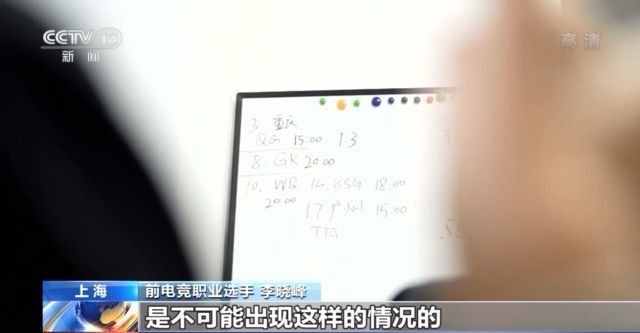 CCTV 13
新闻
高清
3. 重庆
QG 15:00 13
8. GK 20:00
10. WB 14. BSG 18:00
20:00 17 15:00
上海
前电竞职业选手 李晓峰
是不可能出现这样的情况的